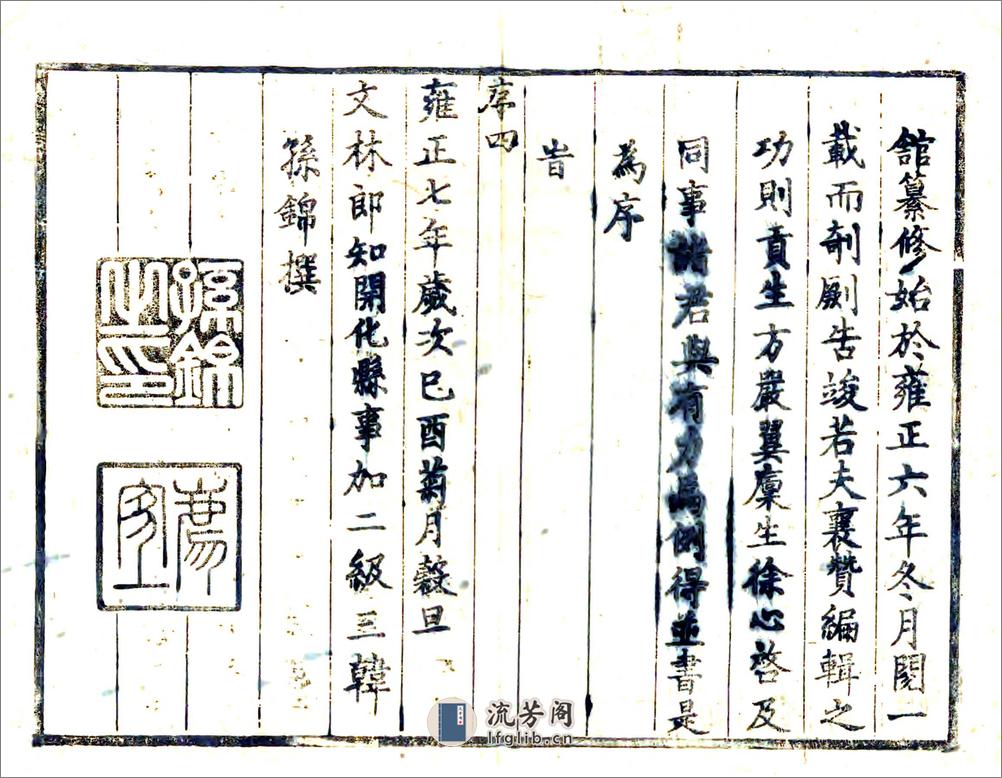 舘纂修始於雍正六年冬月閱一
載而剞劂告竣若夫襄贊編輯之
功則貢生方嚴翼廩生徐心啓及
同事諸君與有力焉例得並書是
為序
旹
序四
雍正七年歲次巳酉菊月穀旦
文林郎知開化縣事加二級三韓
孫錦撰
孫錦之印
流芳阁
lfglib.cn